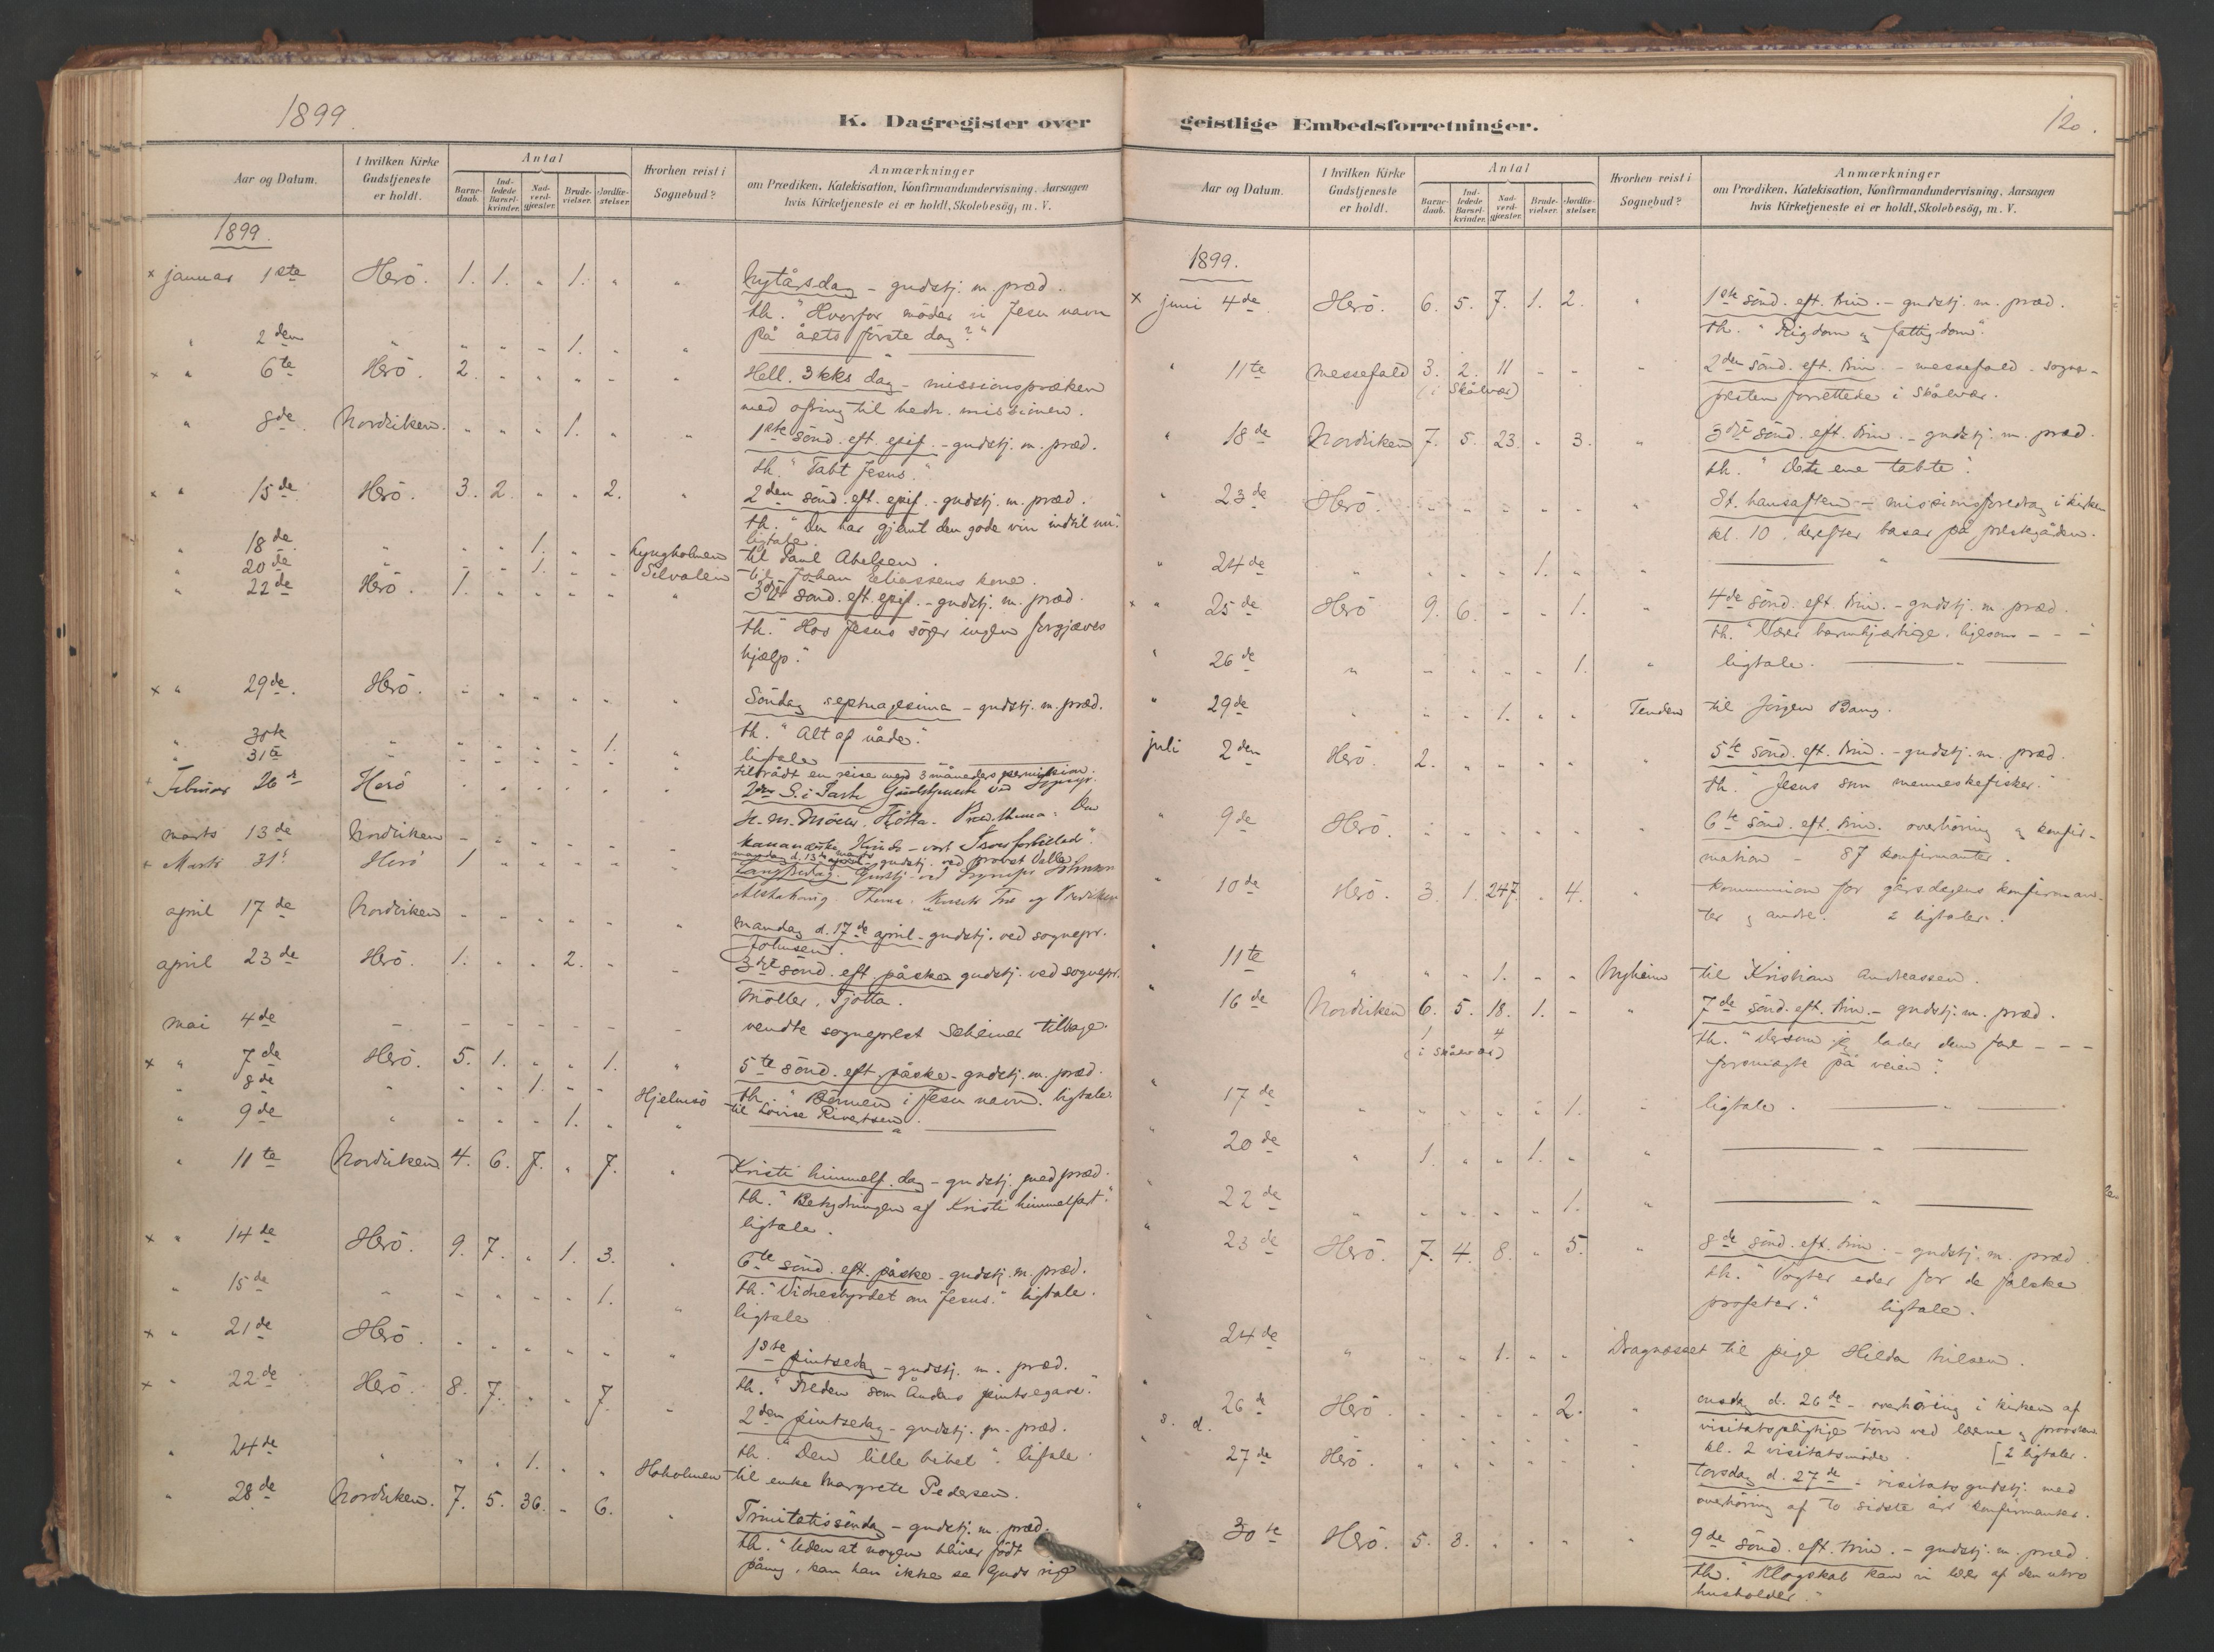 1899.
K. Dagregister over
Aar og Datum.
I hvilken Kirke Gudstjeneste er holdt.
Antal
Barnedaab.
Indledede Barselkvinder.
Nadverdgjæster.
Brudevielser.
Jordfæstelser.
Hvorhen reist i Sognebud?
Anmærkninger
om Prædiken, Katekisation, Konfirmandundervisning, Aarsagen
hvis Kirketjeneste ei er holdt, Skolebesög, m. V.
1899.
x januar 1ste Herö. 1. 1. " 1. " " Nytårsdag - gudstj. m. præd.
th. "Hvorfor möder vi Jesu navn
på årets förste dag?"
" 2den " " " " 1. " "
x " 6te Herö. 2. " " " " " Hell. 3 kks dag - missionspræken
med ofring til hedn. missionen.
" 8de Nordviken. " " " 1. " " 1ste sönd. eft. epif. - gudstj. m. præd.
th. "Tabt Jesus."
x " 15de Herö. 3. 2. " " 2. " 2den sönd. eft. epif. - gudstj. m. præd.
th. "Du har gjemt den gode vin indtil nu."
ligtale.
" 18de " " " 1. " " Lyngholmen til Paul Abelsen.
" 20de " " " 1. " " Silvalen til Johan Eliassens kone.
" 22de Herö. 1. " " " " " 3die sönd. eft. epif. - gudstj. m. præd.
th. "Hos Jesus söger ingen forgjæves
hjælp."
x " 29de. Herö. " " " " " " Söndag septuagesima - gudstj. m. præd.
th. "Alt af nåde."
" 30te " " " " " 1. " ligtale
" 31te " " " " " " " tiltrådt en reise med 3 måneders permission.
+ Februar 26de Herö " " " " " " 2den S. i Faste Gudstjeneste ved Sognepr.
H. M. Möller, Tjötta. Præd. thema: Den
kananæiske Kvinde - vort Troesforbillede".
marts 13de Nordviken mandag d. 13de marts gudstj. ved provst
+ Marts 31te Herö 1 " " " " " Langfredag. Gudstj. ved Sognepr. Johnson
Alstahoug. Thema:
april 17de Nordviken - - - - - " mandag d. 17de april - gudstj. ved sognepr.
Johnsen.
april 23de Herö. 1. " " 2. " " 3die sönd. eft. påske gudstj. ved sognepr.
Möller, Tjötta.
mai 4de - - - - - - - vendte sogneprest Scheiner tilbage.
x " 7de Herö. 5. 1. " " 1. " 5te sönd. eft. påske - gudstj. m. præd.
th. "Bönnen i Jesu navn." ligtale.
" 8de " " " 1. " " Hjelmsö til Lovise Rivertsen.
" 9de " " " " 1. " "
" 11te Nordviken 4. 6. 7. " 7. " Kristi himmelf. dag - gudstj. med præd.
th. "Betydningen af Kristi himmelfart."
ligtale.
x " 14de Herö. 9. 7. " 1. 3. " 6te sönd. eft. påske - gudstj. m. præd.
th. "Vidnesbyrdet om Jesus." ligtale.
" 15de " " " " " 1. " ligtale
x " 21de Herö. " " " " " " 1ste pintsedag - gudstj. m. præd.
th. "Freden som Åndens pintsegave."
x " 22de Herö. 8. 7. " " 7. " 2den pintsedag - gudstj. m. præd.
th. "Den lille bibel". ligtale.
" 24de " " " 1. " " Hoholmen til enke Margrete Pedersen.
" 28de Nordviken. 7. 5. 36. - 6. " Trinitatissöndag - gudstj. m. præd.
th. "Uden at nogen bliver födt
påny, kan han ikke se Guds rige
geistlige Embedsforretninger.
120.
Aar og Datum.
I hvilken Kirke Gudstjeneste er holdt.
Antal
Barnedaab.
Indledede Barselkvinder.
Nadverdgjæster.
Brudevielser.
Jordfæstelser.
Hvorhen reist i Sognebud?
Anmærkninger
om Prædiken, Katekisation, Konfirmandundervisning, Aarsagen
hvis Kirketjeneste ei er holdt, Skolebesög, m. V.
1899.
x juni 4de Herö. 6. 5. 7. 1. 2. " 1ste sönd. eft. trin. - gudstj. m. præd.
th. "Rigdom & fattigdom".
" 11te messefald 3. 2. 11 - - " 2den sönd. eft. trin. - messefald - sogne-
(i Skålvær) presten forrettede i Skålvær.
" 18de Nordviken 7. 5. 23. " 3. " 3die sönd. eft. trin. - gudstj. m. præd.
th. "Det ene tabte".
" 23de Herö. " " " " " " St. hansaften - missionsforedrag i kirken
kl. 10, derefter basar på prestegården.
" 24de " " " " 1. " "
x " 25de Herö 9. 6. - - 1. " 4de sönd. eft. trin. - gudstj. m. præd.
th. "Vær barmhjertige, ligesom - - -"
" 26de " " " " " 1. " ligtale.
" 29de " " " 1. " " Tenden til Jörgen Bang.
juli 2den Herö. 2. " " " " " 5te sönd. eft. trin. - gudstj. m. præd.
th. "Jesus som menneskefisker."
" 9de Herö. " " " " " " 6te sönd. eft. trin. overhöring & konfir-
mation - 87 konfirmanter.
" 10de Herö. 3. 1. 247. " 4. " kommunion for gårsdagens konfirman-
ter & andre. 2 ligtaler.
" 11te " " " 1. - - Nyheim til Kristian Andreassen.
" 16de Nordviken 6. 5. 18. 1. - " 7de sönd. eft. trin. - gudstj. m. præd.
1 4
(i Skålvær) th. "Dersom jeg lader dem fare - - -
forsmægte på veien".
" 17de " " " " " 1. " ligtale.
" 20de " 1. " " 1. " "
" 22de " " " " " 1. "
" 23de Herö. 7. 4. 8. " 5. " 8de sönd. eft. trin. - gudstj. m. præd.
th. "Vogter eder for de falske
profeter." ligtale.
" 24de " " " 1. " " Dragnæsset til pige Hilda Nilsen.
" 26de Herö. " " " " 2. " onsdag d. 26de - overhöring i kirken af
s. d. visitatspligtige börn ved lærerne & provsten
kl. 2 visitatsmöde. [2 ligtaler.
" 27de Herö. " " " " " " Torsdag d. 27de - visitats gudstj. med
overhöring af to sidste års konfirmanter.
" 30te Herö. 5. 3. " " " " 9de sönd. eft. trin. - gudstj. m. præd.
th. "Klogskab kan vi lære af den utro
husholder."